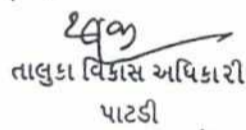 તાલુકા વિકાસ અધિકારી
પાટડી